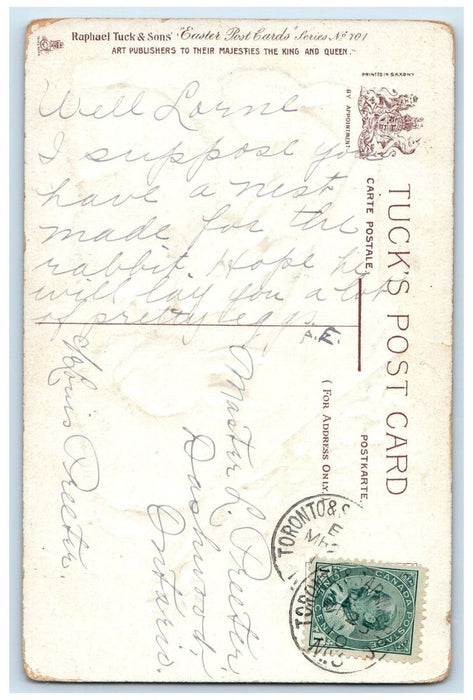 Raphael Tuck & Sons' "Easter Post Cards" Series Nº 701
ART PUBLISHERS TO THEIR MAJESTIES THE KING AND QUEEN.
PRINTED IN SAXONY
BY APPOINTMENT
TUCK'S POST CARD
CARTE POSTALE.
POSTKARTE.
(FOR ADDRESS ONLY.)
Well Lorne
I suppose you
have a nest
made for the
rabbit. Hope he
will lay you a lot
of pretty eggs.
A.E.
Master L. Preeter
Dashwood,
Ontario.
Preeter.
TORONTO &
CANADA POSTAGE